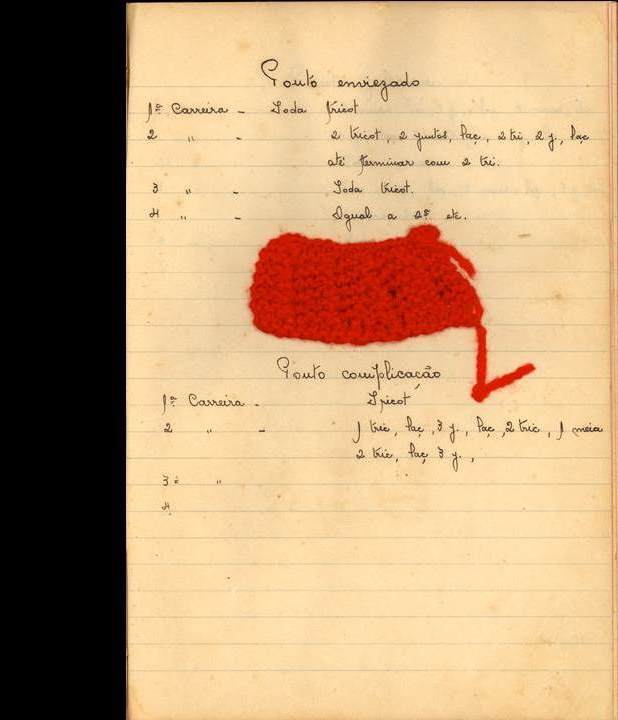 Ponto enviezado
1ª Carreira - Toda tricot
2 " - 2 tricot, 2 juntos, laç, 2 tri, 2 j., laç
até terminar com 2 tri.
3 " - Toda tricot.
4 " - Igual a 2ª etc.
Ponto complicação
1ª Carreira - Tricot
2 " - 1 tric, laç, 3 j., laç, 2 tric, 1 meia
2 tric, laç 3 j.,
3ª "
4.